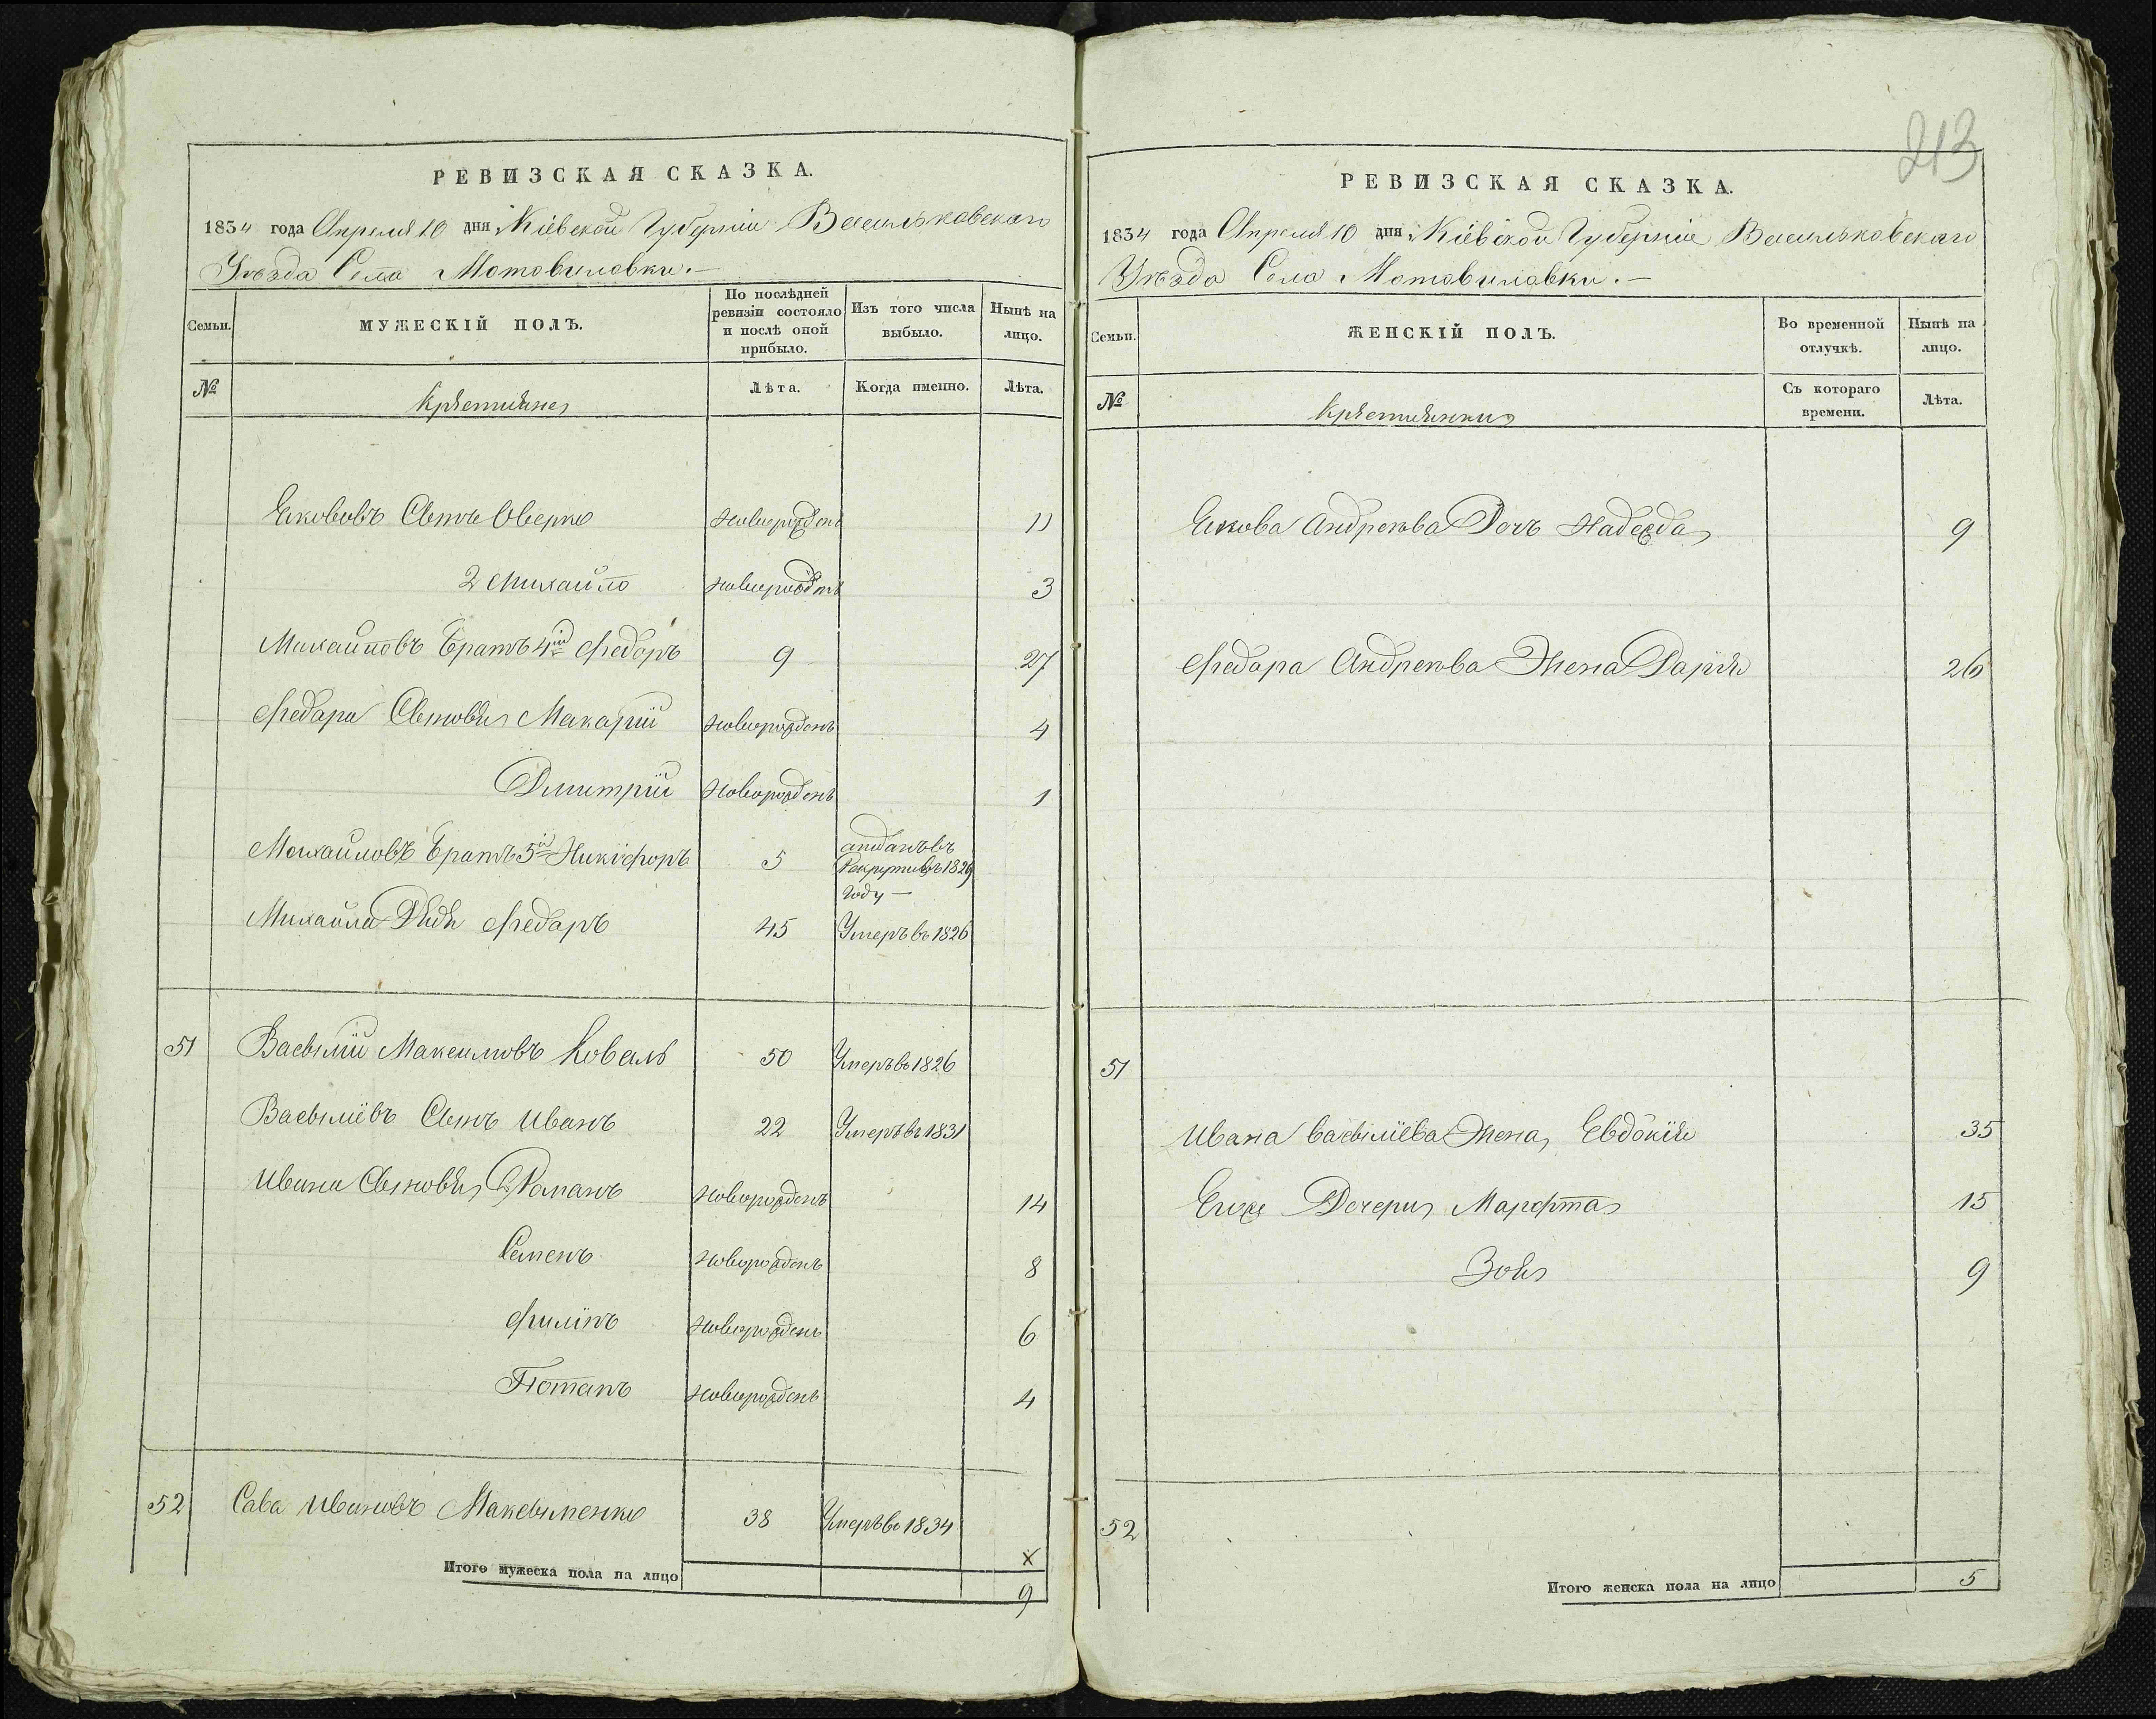 213
РЕВИЗСКАЯ СКАЗКА.
1834 года Апреля 10 дня Кіевской Губерніи Васильковскаго
Уѣзда Села Мотовиловки.—
Семьи.
МУЖЕСКІЙ ПОЛЪ.
По послѣдней ревизіи состояло и послѣ оной прибыло.
Изъ того числа выбыло.
Нынѣ на лицо.
№
Крѣстьяне
Лѣта.
Когда именно.
Лѣта.
Якововъ Сынъ Оверко новорожденъ 11
2 Михайло новорожденъ 3
Михайловъ Братъ 4й Федоръ 9 27
Федора Сыновья Макарій новорожденъ 4
Дмитрій новорожденъ 1
Михайловъ Братъ 5й Никифоръ 5 отданъ въ
Рекруты въ 1829
году —
Михайла Дядя Федоръ 45 Умеръ въ 1826
51 Васылій Максимовъ Коваль 50 Умеръ въ 1826
Васыліевъ Сынъ Иванъ 22 Умеръ въ 1831
Ивана Сыновья Романъ новорожденъ 14
Семенъ новорожденъ 8
Филіпъ новорожденъ 6
Потапъ новорожденъ 4
52 Сава Ивановъ Максыменко 38 Умеръ въ 1834
х
Итого мужеска пола на лицо 9
РЕВИЗСКАЯ СКАЗКА.
1834 года Апреля 10 дня Кіевской Губерніи Васильковскаго
Уѣзда Села Мотовиловки.—
Семьи.
ЖЕНСКІЙ ПОЛЪ.
Во временной отлучкѣ.
Нынѣ на лицо.
№
Крѣстьянки
Съ котораго времени.
Лѣта.
Якова Андреева Дочь Надежда 9
Федора Андреева Жена Дарія 26
51
Ивана Васыліева Жена Евдокія 35
Ихъ Дочери Марфта 15
Зоя 9
52
Итого женска пола на лицо 5